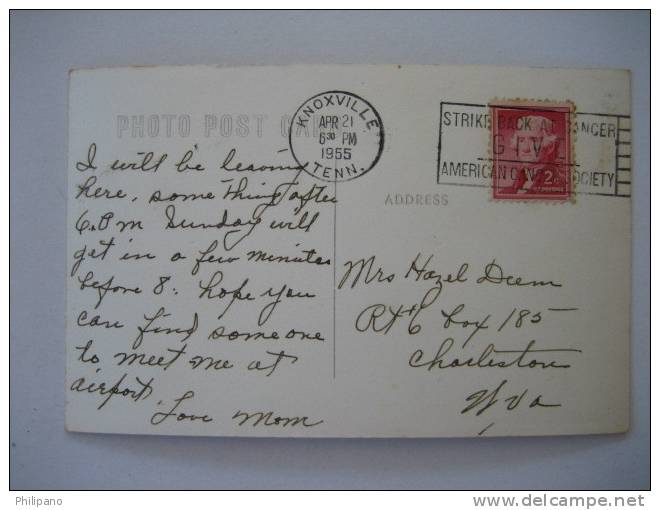 PHOTO POST CARD
KNOXVILLE
APR 21
6 30 PM
1955
TENN.
STRIKE BACK AT CANCER
GIVE
AMERICAN CANCER SOCIETY
2¢
ADDRESS
I will be leaving
here, something after
6. P m Sunday will
get in a few minutes
before 8. hope you
can find someone
to meet me at
airport.
Love Mom
Mrs Hazel Deem
Rt 6 box 185
Charleston
W Va
Philipano
delcampe.net